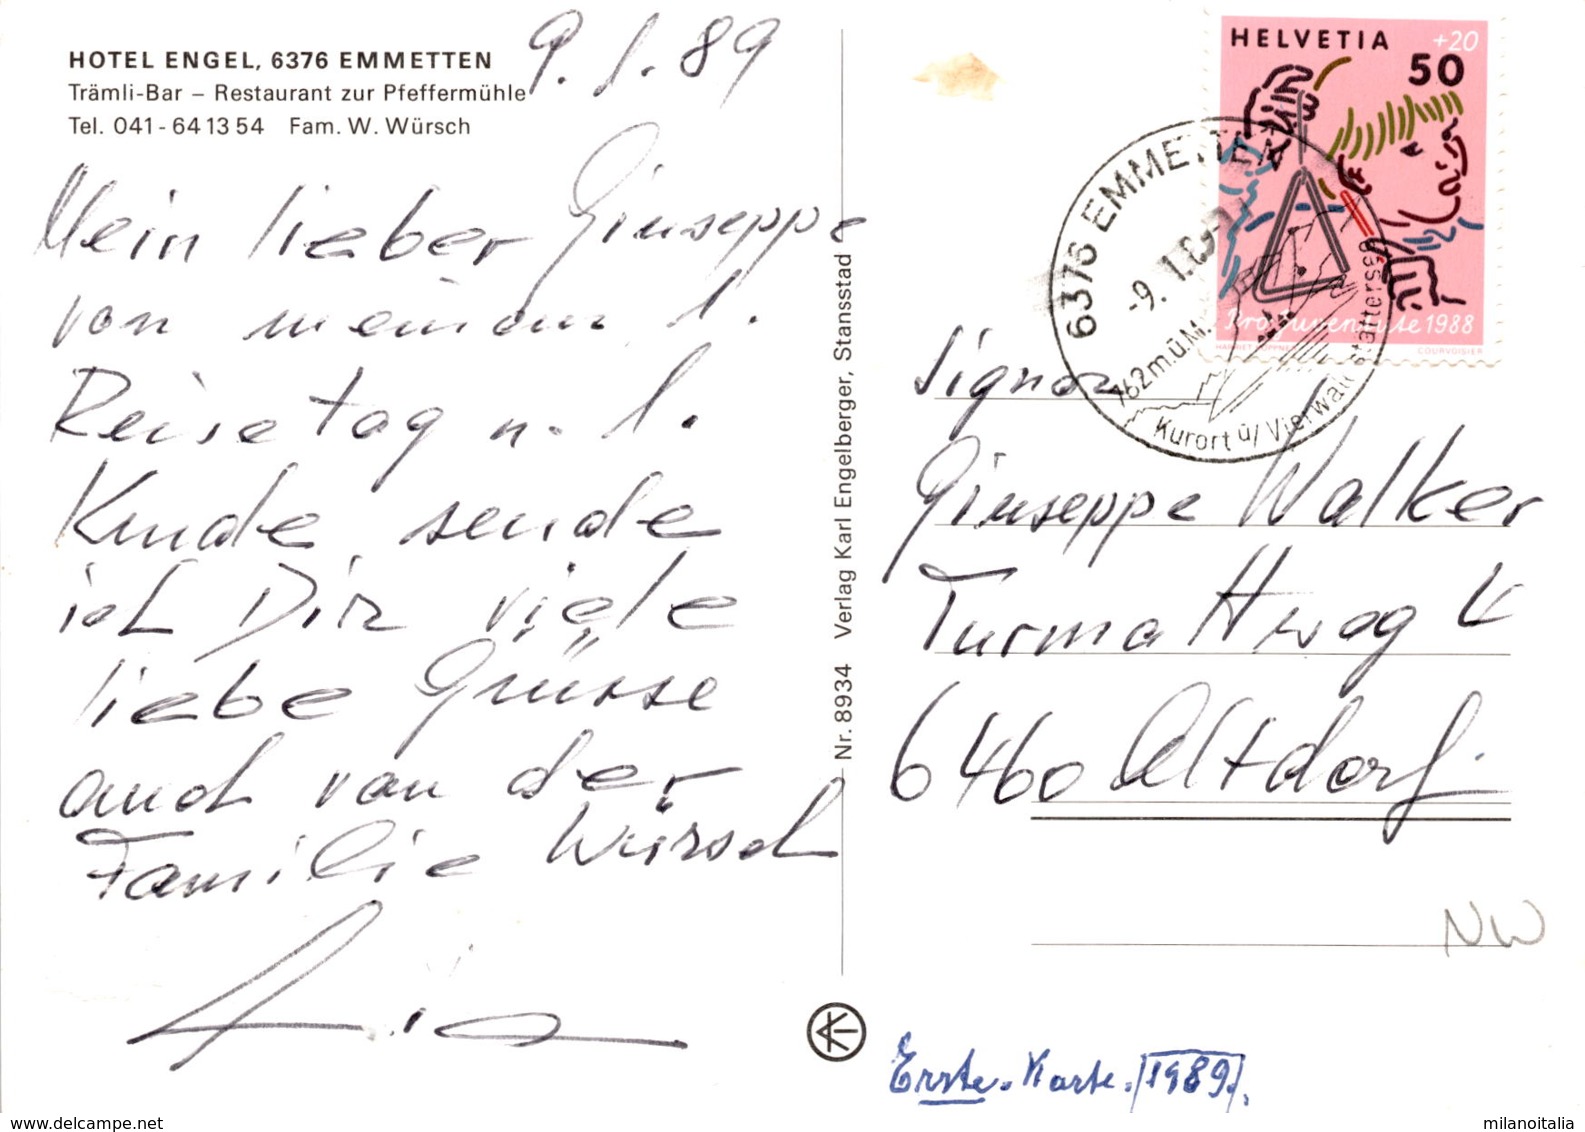 HOTEL ENGEL, 6376 EMMETTEN
Trämli-Bar – Restaurant zur Pfeffermühle
Tel. 041-64 13 54 Fam. W. Würsch
9.1.89
Mein lieber Giuseppe
von meinem l.
Reisetag n. l.
Kunde, sende
ich Dir viele
liebe Grüsse
auch von der
Familie Würsch
Nr. 8934 Verlag Karl Engelberger, Stansstad
HELVETIA +20
50
Pro Juventute 1988
COURVOISIER
6376 EMMETTEN
-9. 1.89-
762 m.ü.M.
Kurort ü/Vierwaldstättersee
Signor
Giuseppe Walker
Turmattweg 4
6460 Altdorf
NW
Erste Karte. 1989.
www.delcampe.net
milanoitalia